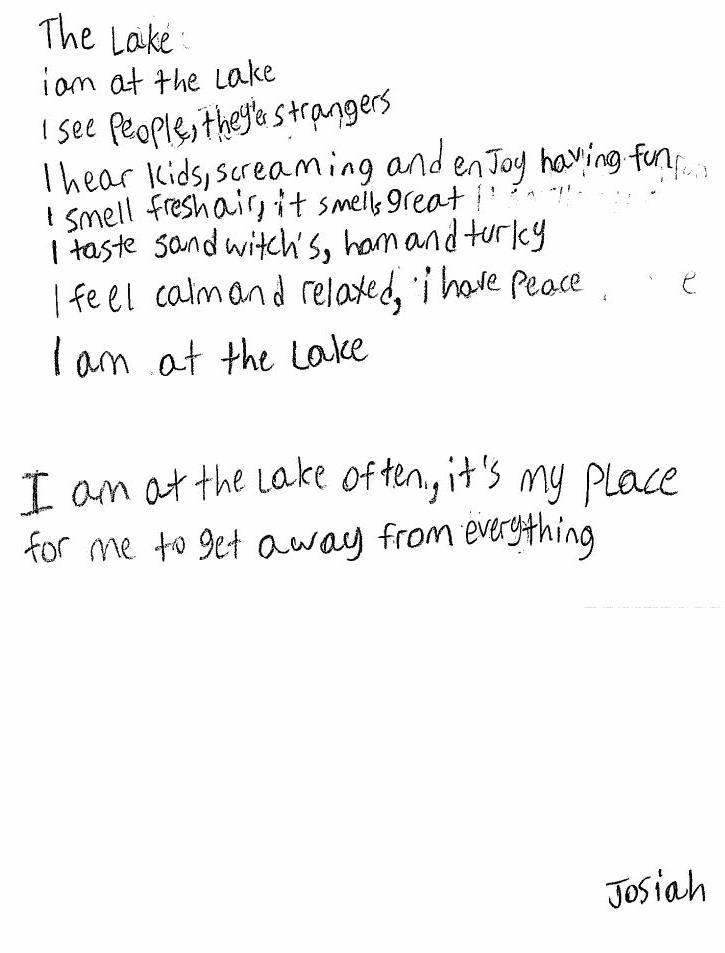 The Lake
i am at the Lake
I see People, they'er strangers
I hear kids, screaming and enJoy having fun
I smell fresh air, it smells great
I taste sandwitch's, ham and turky
I feel calm and relaxed, i have Peace
I am at the Lake
I am at the Lake often, it's my PLace
for me to get away from everything
Josiah